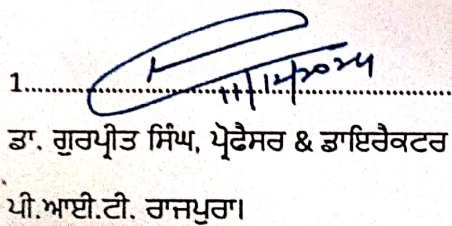 1....................11/12/2024....................
ਡਾ. ਗੁਰਪ੍ਰੀਤ ਸਿੰਘ, ਪ੍ਰੋਫੈਸਰ & ਡਾਇਰੈਕਟਰ
ਪੀ.ਆਈ.ਟੀ. ਰਾਜਪੁਰਾ।